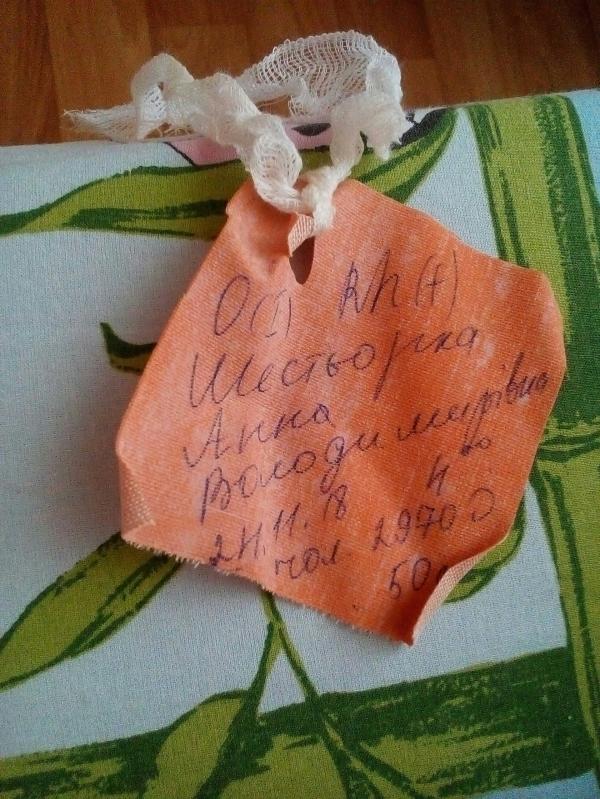 O(I) Rh(+)
Шестьорка
Анна
Володимирівна
24.11.18 4⁰⁰
чол 2970
50